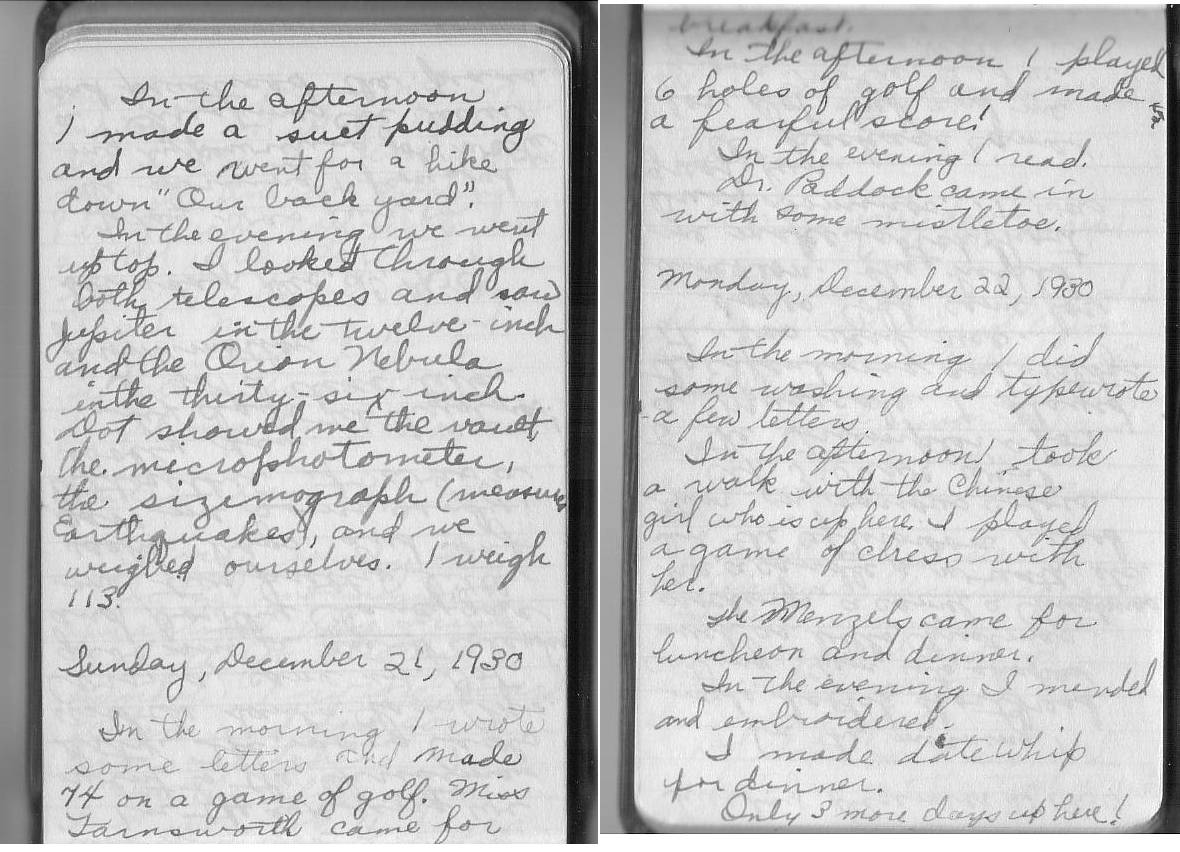 In the afternoon
I made a suet pudding
and we went for a hike
down "Our back yard".
In the evening we went
up top. I looked through
both telescopes and saw
Jupiter in the twelve-inch
and the Orion Nebula
in the thirty-six inch.
Dot showed me the vault,
the microphotometer,
the sizemograph (measures
Earthquakes), and we
weighed ourselves. I weigh
113.
Sunday, December 21, 1930
In the morning I wrote
some letters and made
74 on a game of golf. Miss
Farnsworth came for
breakfast.
In the afternoon I played
6 holes of golf and made
a fearful score!
In the evening I read.
Dr. Paddock came in
with some mistletoe.
Monday, December 22, 1930
In the morning I did
some washing and typewrote
a few letters.
In the afternoon I took
a walk with the Chinese
girl who is up here. I played
a game of chess with
her.
The Menzels came for
luncheon and dinner.
In the evening I mended
and embroidered.
I made date whip
for dinner.
Only 3 more days up here!